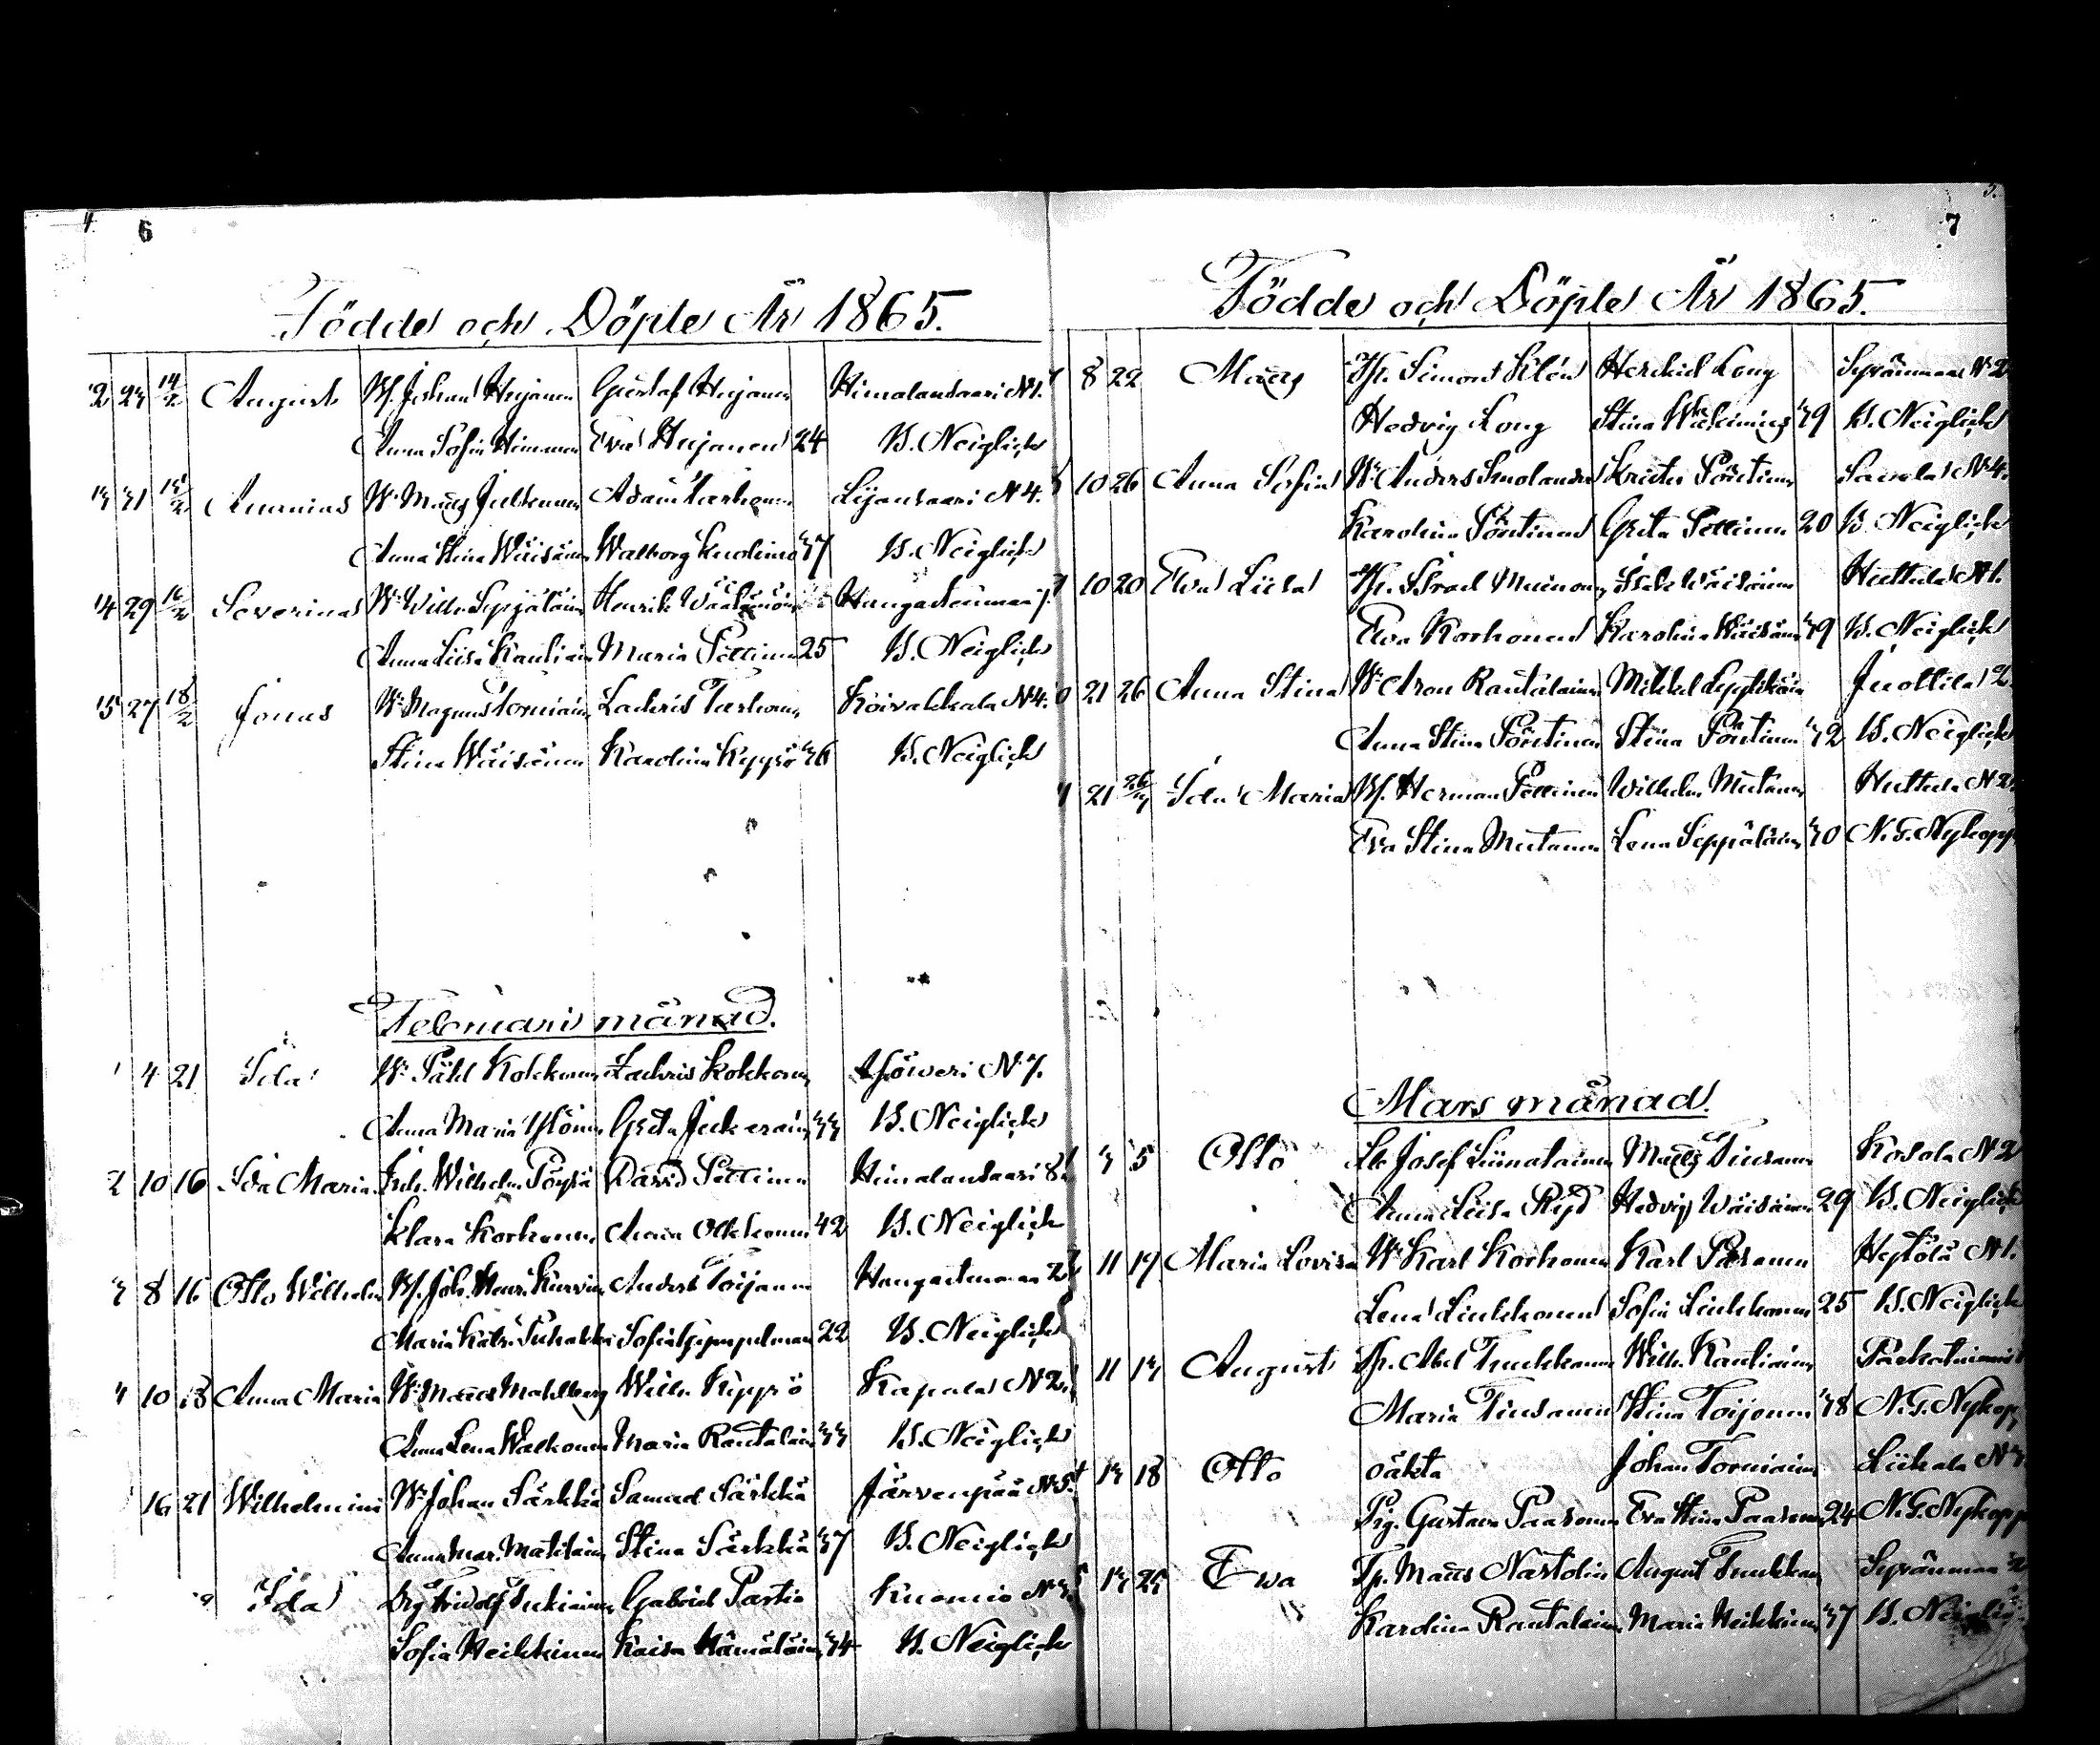 4
6
Födde och Döpte År 1865.
12 23 14/2 August Bf. Johan Heijanen Gustaf Heijanen Himalansaari N 1.
Anna Sofia Himanen Eva Heijanen 24 B. Neiglick
13 31 15/2 Ananias Bd. Matts Julkunen Adam Tarhonen Lijansaari N 4.
Anna Stina Wäisänen Walborg Kuolima 37 B. Neiglick
14 29 16/2 Severina Bd. Wilh. Seppäläinen Henrik Hangastenmaa 7.
Anna Liisa Kauliainen Maria Pettinen 25 B. Neiglick
15 27 18/2 Jonas Bd. Magnus Torniainen Lachris Tarhonen Koivakkala N 4.
Stina Wäisänen Karolina Kyyrö 36 B. Neiglick
Februari månad.
1 4 21 Ida Bd. Påhl Kokkonen Zachris Kokkonen N 7.
Anna Maria Ylönen Greta 33 B. Neiglick
2 10 16 Ida Maria Inh. Wilhelm Pöysä David Pettinen Himalansaari 8.
Klara Korhonen Anna Olkkonen 42 B. Neiglick
3 8 16 Otto Wilhelm Bf. Joh. Henr. Kurvinen Anders Toijanen Hangastenmaa 2
Maria Katr. Puhakka Sofia 22 B. Neiglick
4 10 13 Anna Maria Bd. Matts Mahlberg Wilh. Kyyrö Kapala N 2.
Anna Lena Walkonen Maria Rautalainen 33 B. Neiglick
16 21 Wilhelmina Bd. Johan Särkkä Samuel Särkkä Järvenpää N 5.
Anna Mar. Matilainen Stina Särkkä 37 B. Neiglick
Ida Drg Fridolf Tukiainen Gabriel Partio Kuomio N 3.
Sofia Heikkinen Kaisa Hämäläinen 34 B. Neiglick
7
Födde och Döpte År 1865.
8 22 Matts Tp. Simon Silén Herkul Long Syvänmaa N 2
Hedvig Long Stina 39 B. Neiglick
10 26 Anna Sofia Bd. Anders Smolander Krister Pöntinen Savola N 4.
Karolina Pöntinen Greta Pettinen 20 B. Neiglick
10 20 Eva Liisa Tp. Israel Muinonen Isak Wäisänen Huttula N 1.
Eva Korhonen Karolina Wäisänen 39 B. Neiglick
21 26 Anna Stina Bd. Aron Rautalainen Mikkel Lyytikäin Juottila 2.
Anna Stina Pöntinen Stina Pöntinen 32 B. Neiglick
21 26/3 Ida Maria Bf. Herman Pettinen Wilhelm Mutanen Huttula N 2
Eva Stina Mutanen Lena Seppäläinen 30 N. G. Nykopp
Mars månad.
3 5 Otto Sk Josef Liimatainen Matts Tiusanen Kosola N 2
Anna Liisa Ryd Hedvig Wäisänen 29 B. Neiglick
11 17 Maria Lovisa Bd. Karl Korhonen Karl Pasanen Heftölä N 1.
Lena Liukkonen Sofia Liukkonen 25 B. Neiglick
11 13 August Tp. Abel Tuukkanen Wilh. Kauliainen
Maria Tiusanen Stina Toijonen 38 N. G. Nykopp
13 18 Otto oäkta Johan Torniainen Liikala N 3
Pig. Gustava Paasonen Eva Stina Paasonen 24 N. G. Nykopp
13 25 Ewa Tp. Matts Nartolin August Tuukkan Syvänmaa 2
Karolina Rautalainen Maria Heikkinen 37 B. Neiglick